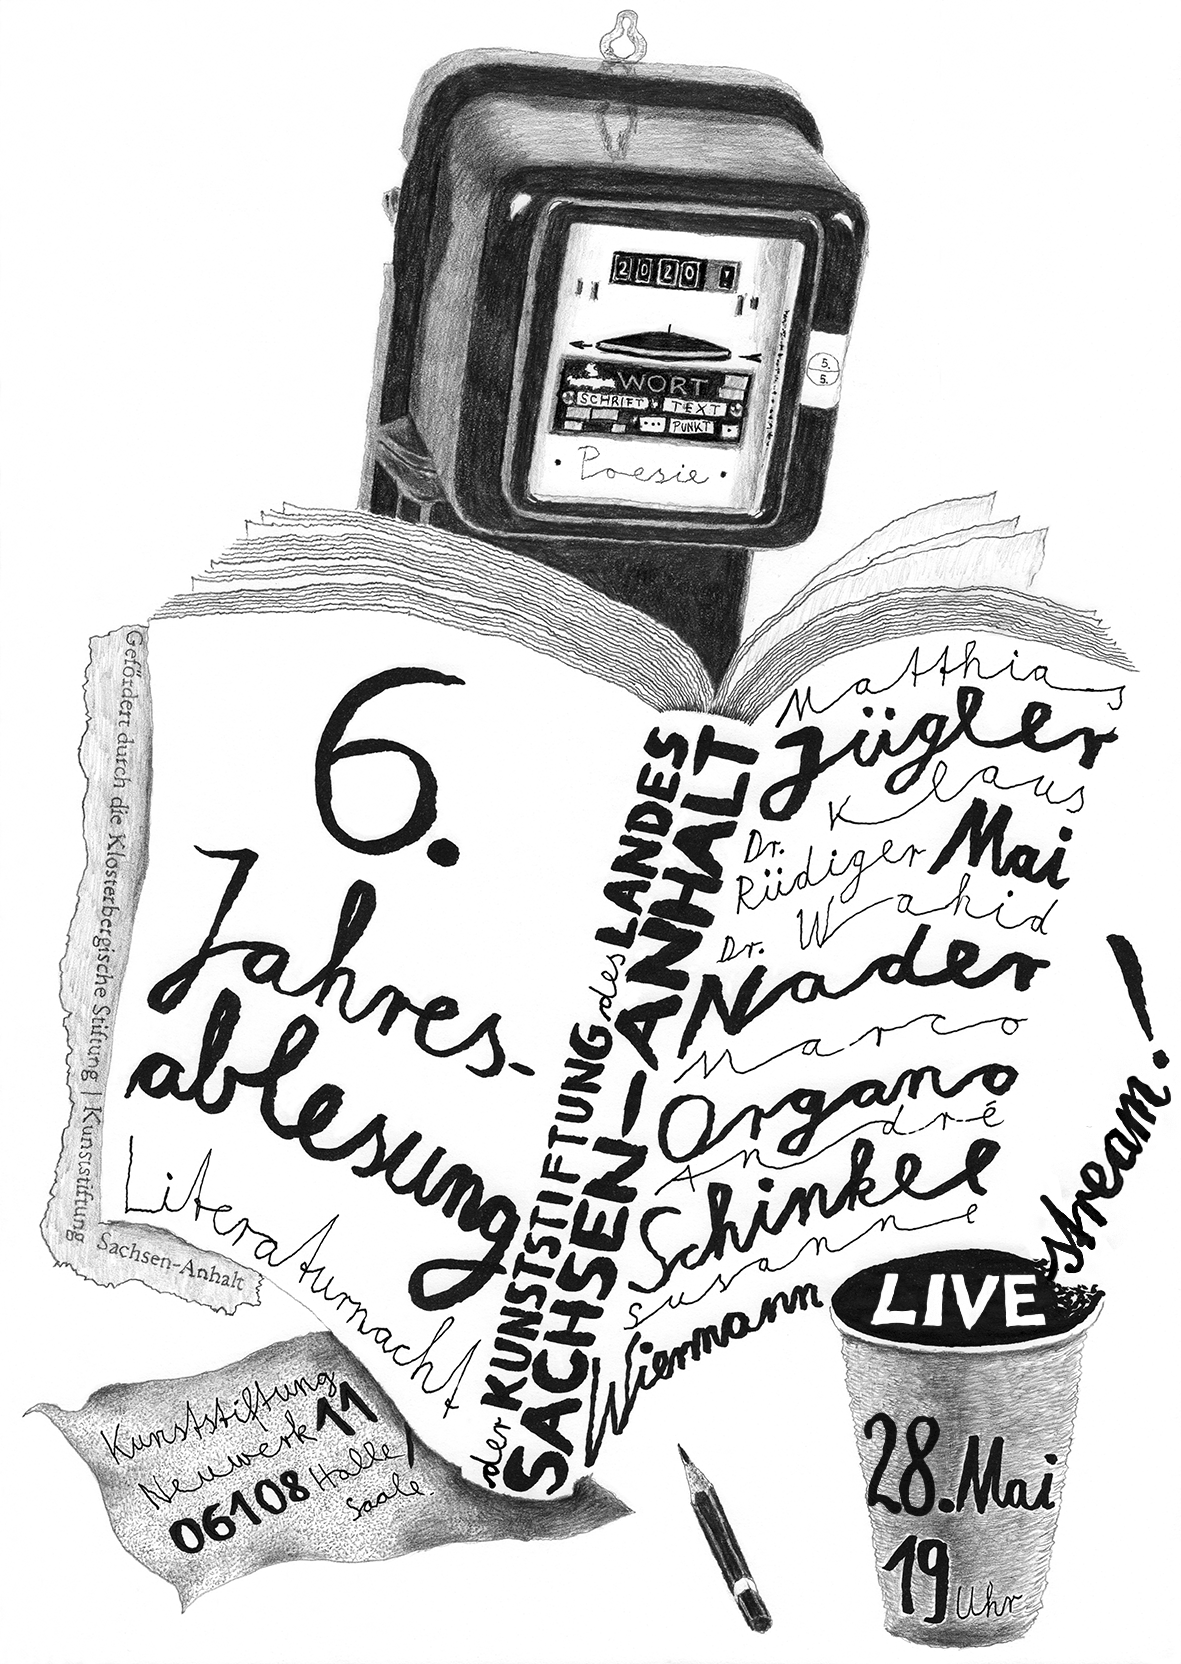 2020
5.
5.
WORT
SCHRIFT TEXT
... PUNKT .
· Poesie ·
6.
Jahres-
ablesung
Literaturnacht
der KUNSTSTIFTUNG des LANDES
SACHSEN-ANHALT
Matthias
Jügler
Klaus
Dr.
Rüdiger Mai
Dr. Wahid
Nader
Marco
Organo
André
Schinkel
Susanne
Wiermann
LIVE
stream!
28. Mai
19 Uhr
Gefördert durch die Klosterbergische Stiftung | Kunststiftung
Sachsen-Anhalt
Kunststiftung
Neuwerk 11
06108 Halle/
Saale